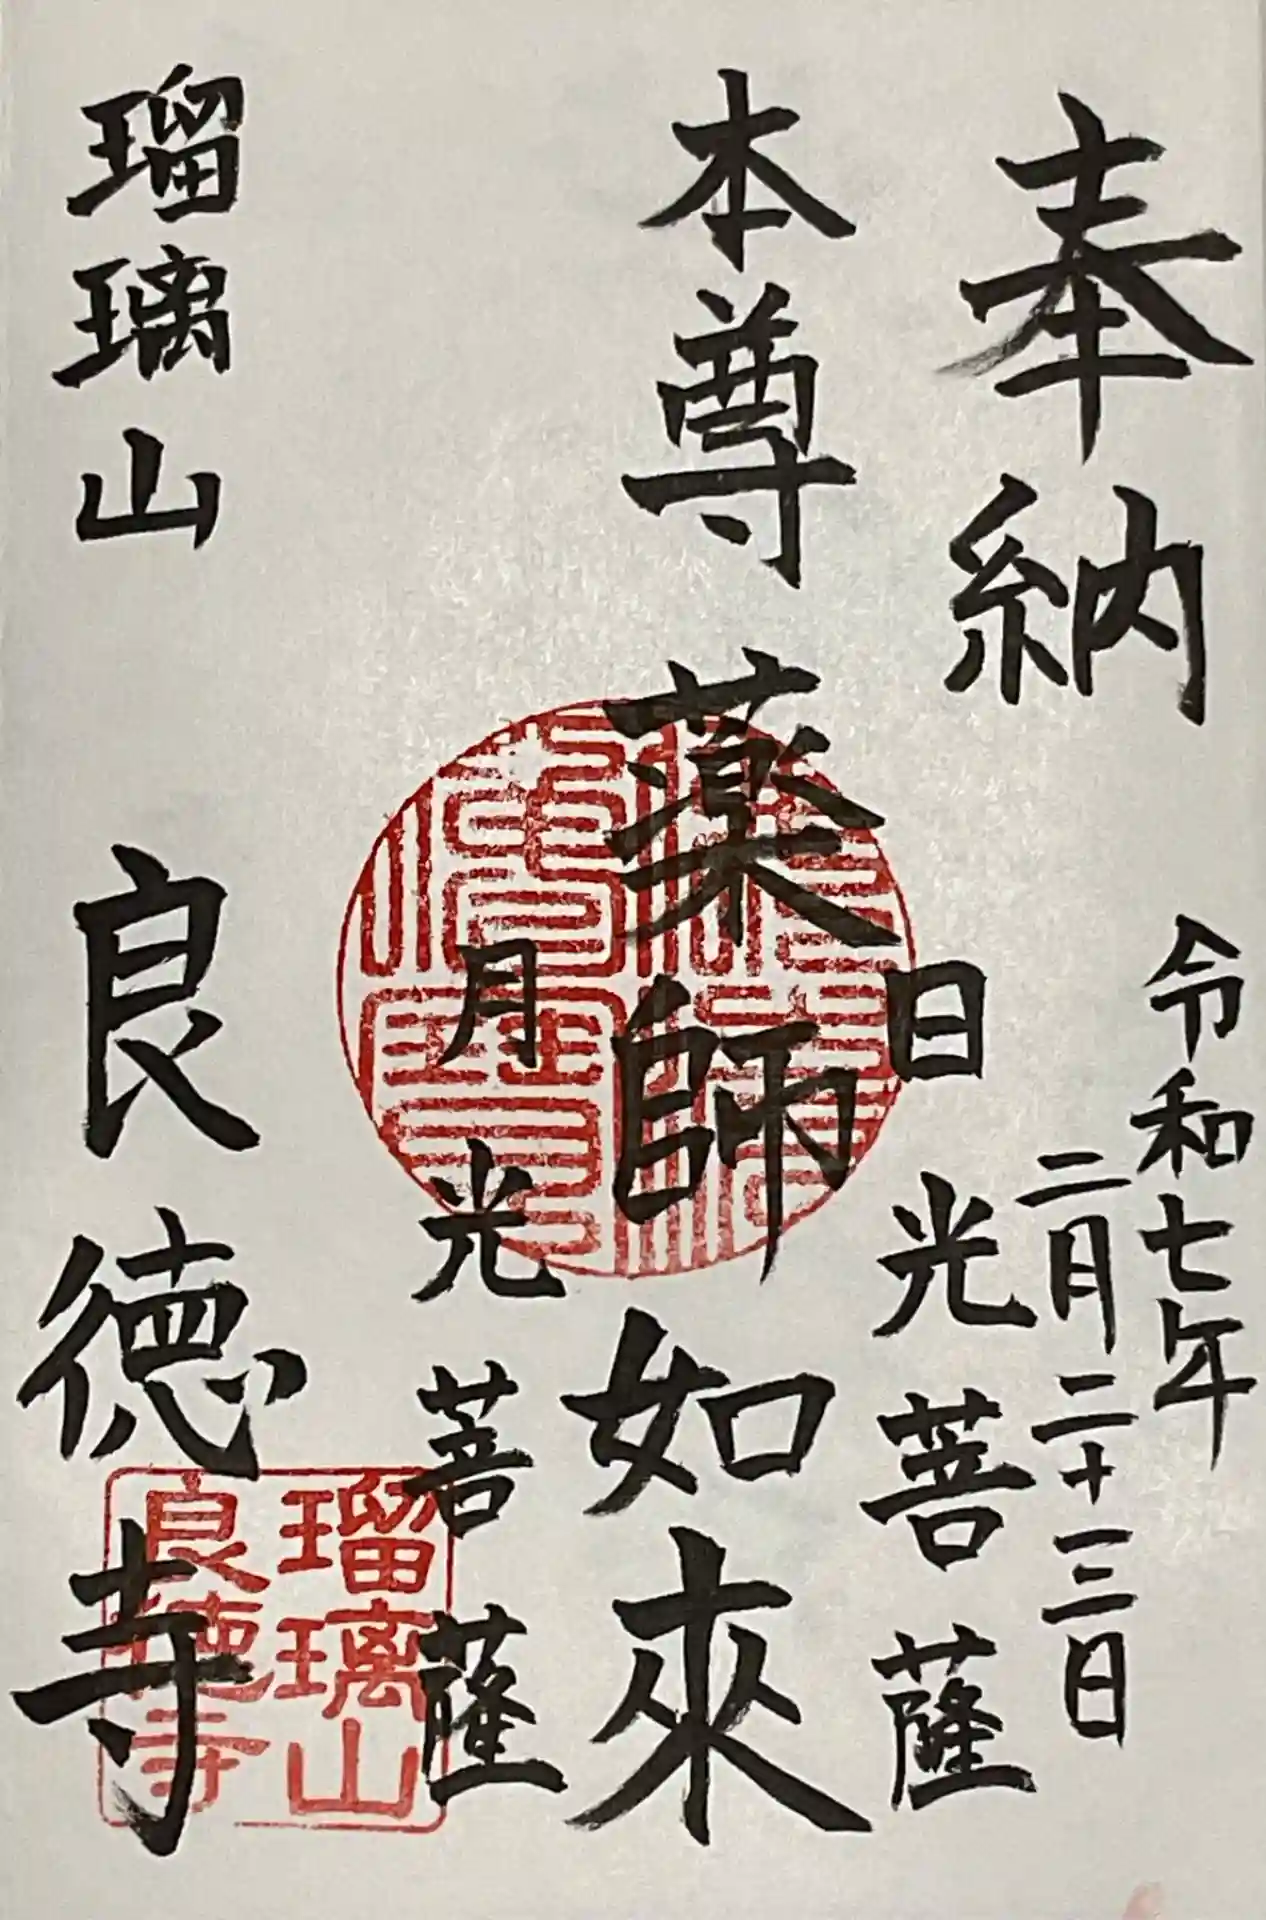 奉納
令和七年
二月二十三日
日光菩薩
本尊 薬師如来
月光菩薩
瑠璃山 良徳寺
瑠璃山
良徳寺